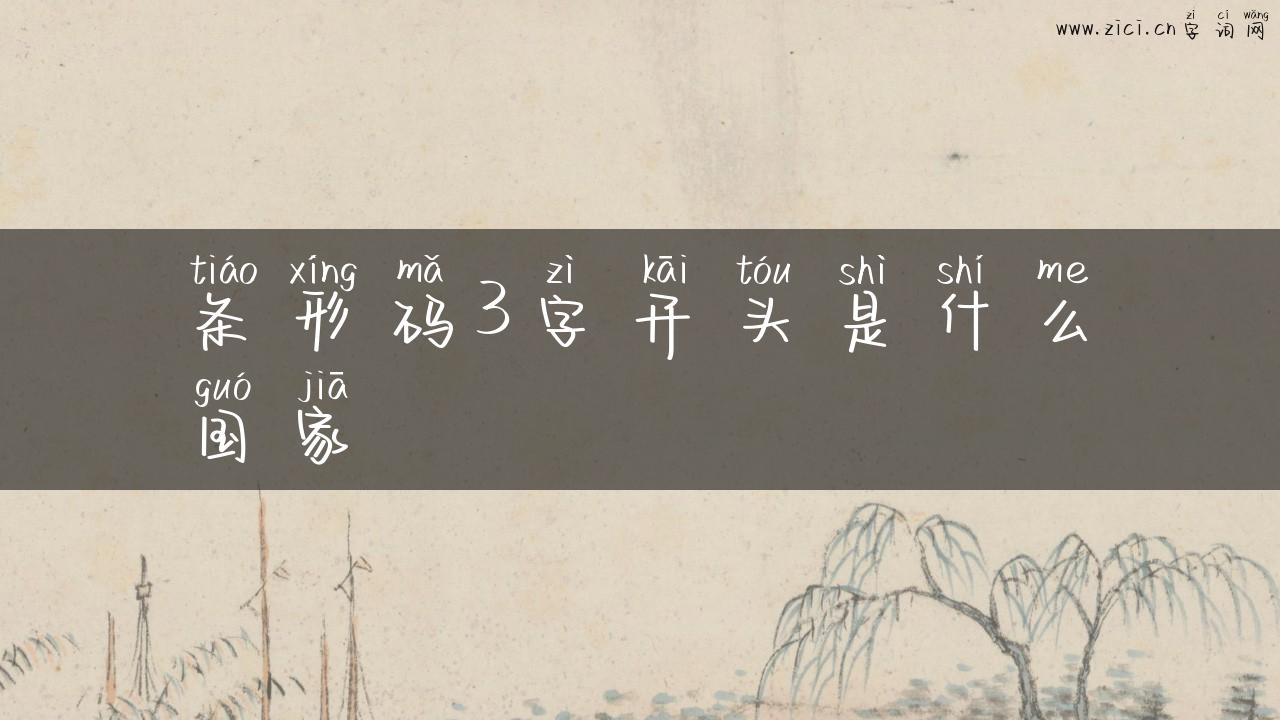 zì cí wǎng
www.zici.cn 字词网
tiáo xíng mǎ zì kāi tóu shì shí me
条形码3字开头是什么
guó jiā
国家